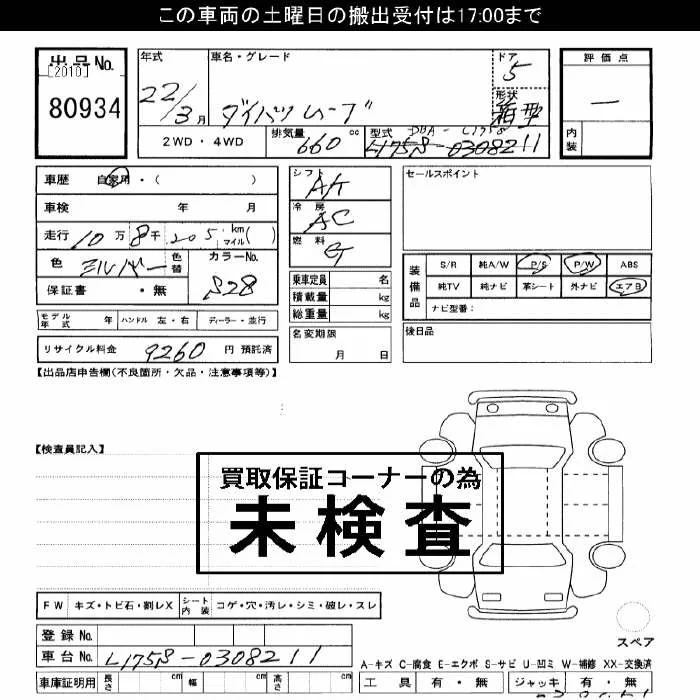 この車両の土曜日の搬出受付は17:00まで
出品No.
[2010]
80934
年式
22/3月
車名・グレード
ダイハツムーブ
ドア
5
形状
箱型
評価点
—
内装
2WD・4WD
排気量
660cc
型式
DBA-L175S
L175S-0308211
車歴 自家用・( )
車検 年 月
走行 10万8千205kmマイル( )
色 シルバー 色替
カラーNo.
S28
保証書 ・無
シフト
AT
冷房
AC
燃料
G
乗車定員 名
積載量 kg
総重量 kg
名変期限
月 日
セールスポイント
装備品
S/R 純A/W P/S P/W ABS
純TV 純ナビ 革シート 外ナビ エアB
ナビ型番:
後日品
モデル年式 年 ハンドル 左・右 ディーラー・並行
リサイクル料金 9260 円 預託済
【出品店申告欄(不良箇所・欠品・注意事項等)】
【検査員記入】
買取保証コーナーの為
未検査
FW キズ・トビ石・割レX シート内装 コゲ・穴・汚レ・シミ・破レ・スレ
登録No.
車台No. L175S-0308211
車庫証明用 長さ cm 幅 cm 高さ cm
スペア
A-キズ C-腐食 E-エクボ S-サビ U-凹ミ W-補修 XX-交換済
工具 有・無 ジャッキ 有・無